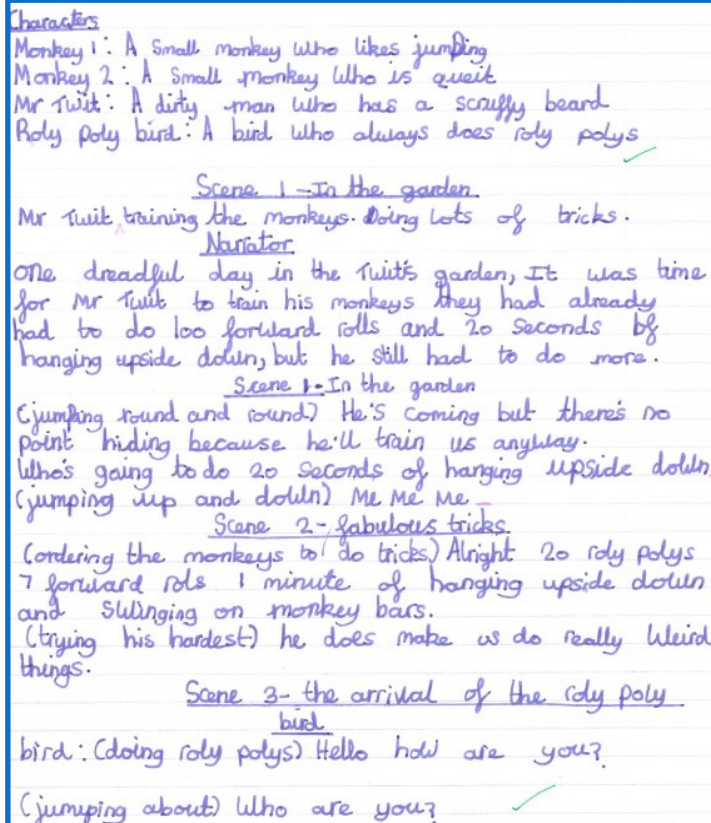 Characters
Monkey 1: A Small monkey who likes jumping
Monkey 2: A Small monkey who is queit
Mr Twit: A dirty man who has a scruffy beard
Roly poly bird: A bird who always does roly polys
Scene 1 - In the garden
Mr Twit training the monkeys. Doing lots of tricks.
Narrator
One dreadful day in the Twit's garden, It was time
for Mr Twit to train his monkeys they had already
had to do 100 forward rolls and 20 seconds of
hanging upside down, but he still had to do more.
Scene 1- In the garden
(jumping round and round) He's coming but there's no
point hiding because he'll train us anyway.
Who's going to do 20 seconds of hanging upside down
(jumping up and down) Me Me Me
Scene 2- fabulous tricks
(ordering the monkeys to do tricks) Alright 20 roly polys
7 forward rols 1 minute of hanging upside down
and swinging on monkey bars.
(trying his hardest) he does make us do really weird
things.
Scene 3- the arrival of the roly poly
bird
bird: (doing roly polys) Hello how are you?
(jumuping about) Who are you?